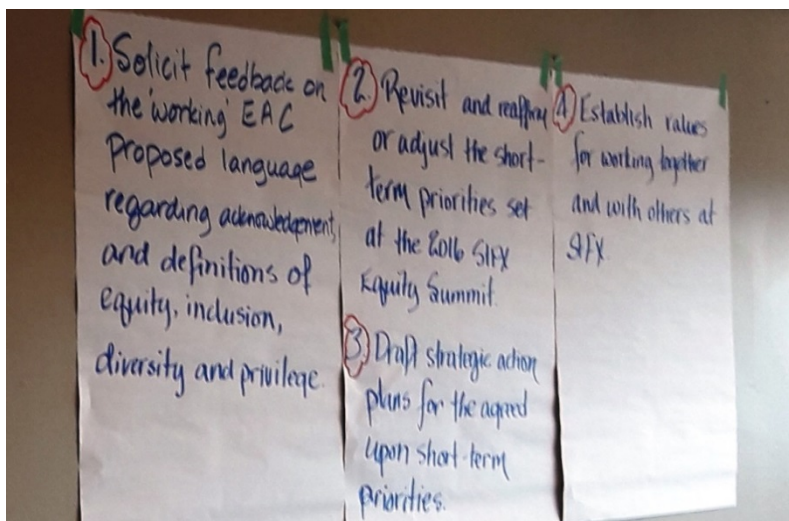 1. Solicit feedback on
the 'working' EAC
proposed language
regarding acknowledgement,
and definitions of
equity, inclusion,
diversity and privilege.
2. Revisit and reaffirm
or adjust the short-
term priorities set
at the 2016 StFX
Equity Summit.
3. Draft strategic action
plans for the agreed
upon short-term
priorities.
4. Establish values
for working together
and with others at
StFX.